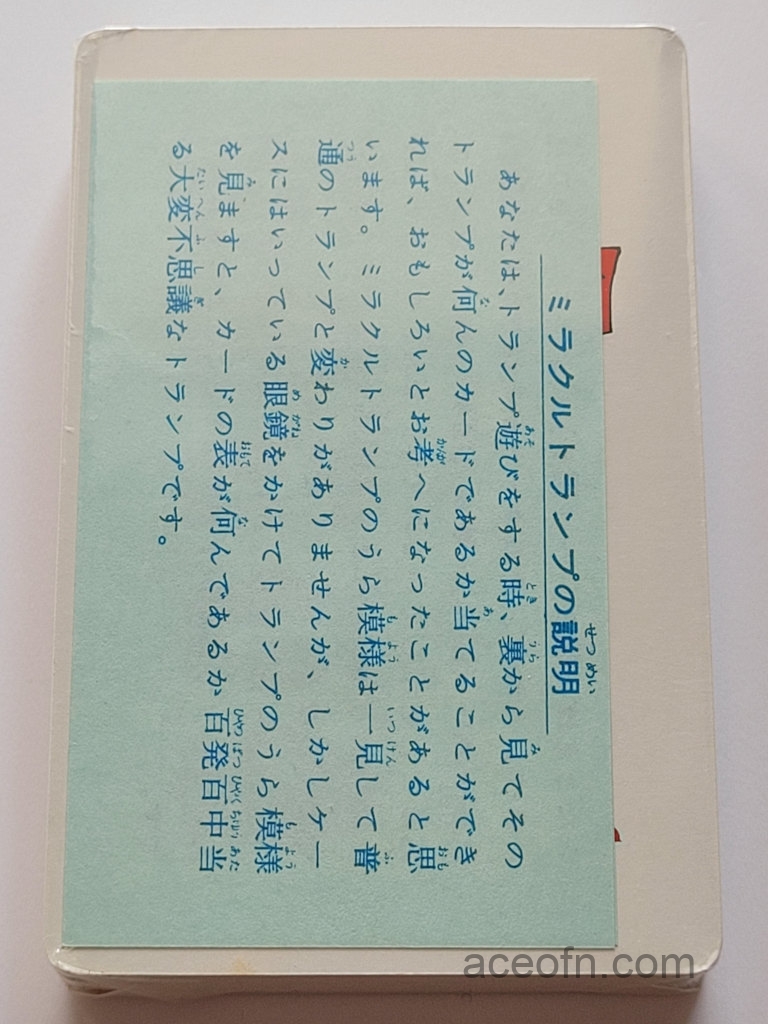 ミラクルトランプの説明
せつめい
あなたは、トランプ遊びをする時、裏から見てその
トランプが何んのカードであるか当てることができ
れば、おもしろいとお考へになったことがあると思
います。ミラクルトランプのうら模様は一見して普
通のトランプと変わりがありませんが、しかしケー
スにはいっている眼鏡をかけてトランプのうら模様
を見ますと、カードの表が何んであるか百発百中当
る大変不思議なトランプです。
aceofn.com